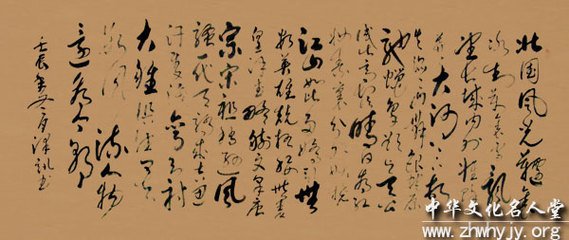 北国风光
冰封万里雪飘
望长城内外惟
大河上下顿
失滔滔山舞银蛇
驰蜡象欲与天公
试比高须晴日看红
妆素裹分外妖娆
江山如此多娇引无
数英雄竞折腰惜秦
皇汉武略输文采唐
宗宋祖稍逊风
骚一代天骄成吉思
汗只识弯弓射
大雕俱往矣
数风流人物
还看今朝
壬辰年冬
书
中华文化名人堂
www.zhwhyjy.org